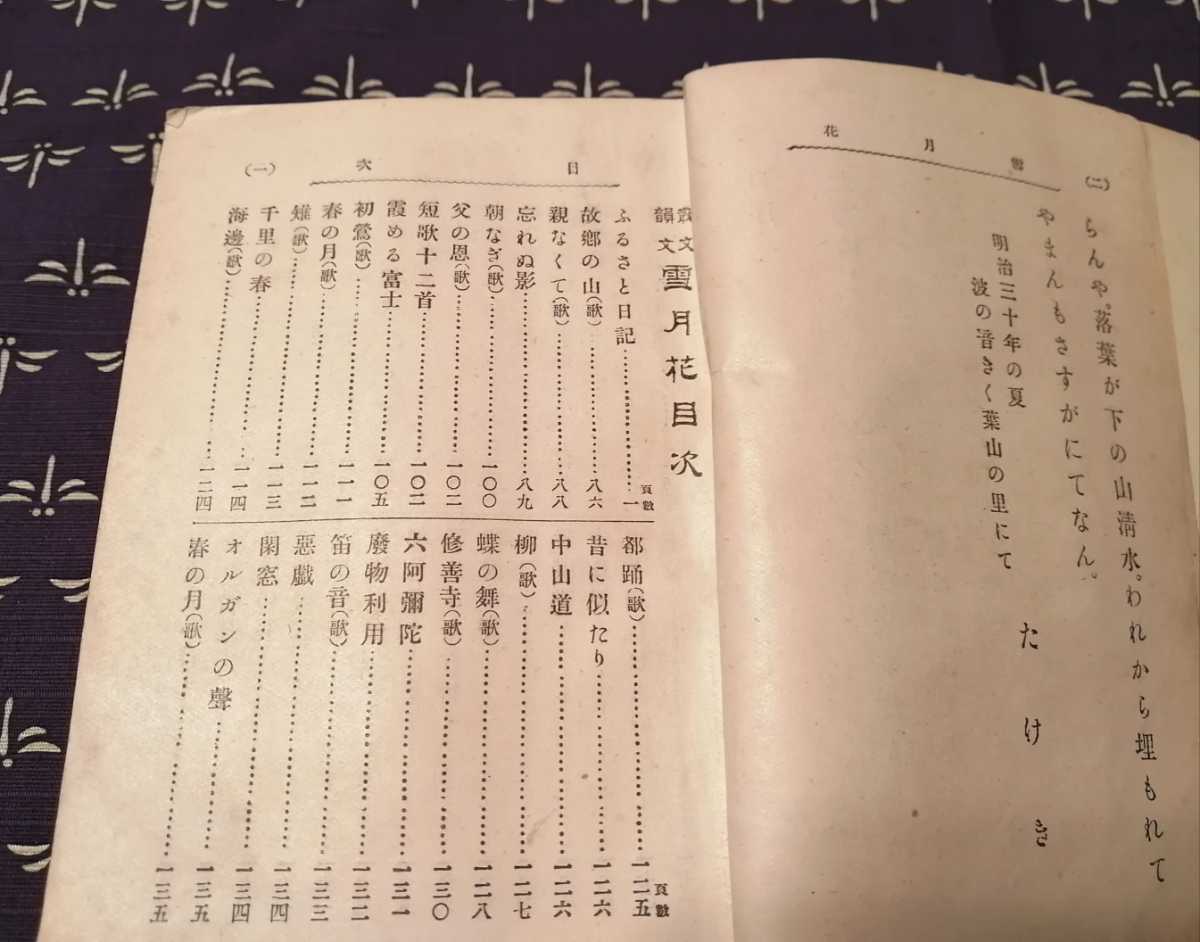 雪月花
(二)
らんや。落葉が下の山淸水。われから埋もれて
やまんもさすがにてなん。
明治三十年の夏
波の音きく葉山の里にて
たけき
目次
(一)
散文
韻文
雪月花目次
頁數
ふるさと日記……一
故鄕の山(歌)……八六
親なくて(歌)……八八
忘れぬ影……八九
朝なぎ(歌)……一〇〇
父の恩(歌)……一〇二
短歌十二首……一〇二
霞める富士……一〇五
初鶯(歌)……一一一
春の月(歌)……一一二
雉(歌)……一一二
千里の春……一一三
海邊(歌)……一二四
頁數
都踊(歌)……一二五
昔に似たり……一二六
中山道……一二六
柳(歌)……一二七
蝶の舞(歌)……一二八
修善寺(歌)……一三〇
六阿彌陀……一三一
廢物利用……一三二
笛の音(歌)……一三三
惡戲……一三四
閑窓……一三四
オルガンの聲……一三五
春の月(歌)……一三五